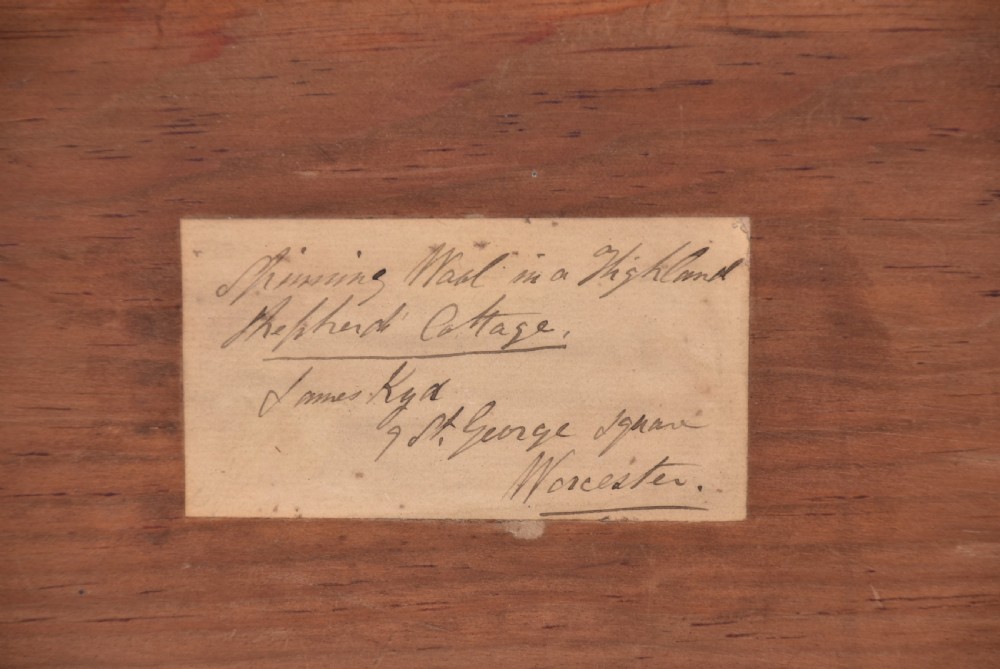 Spinning Wool in a Highland
Shepherds' Cottage.
James Kyd
9 St. George Square
Worcester.